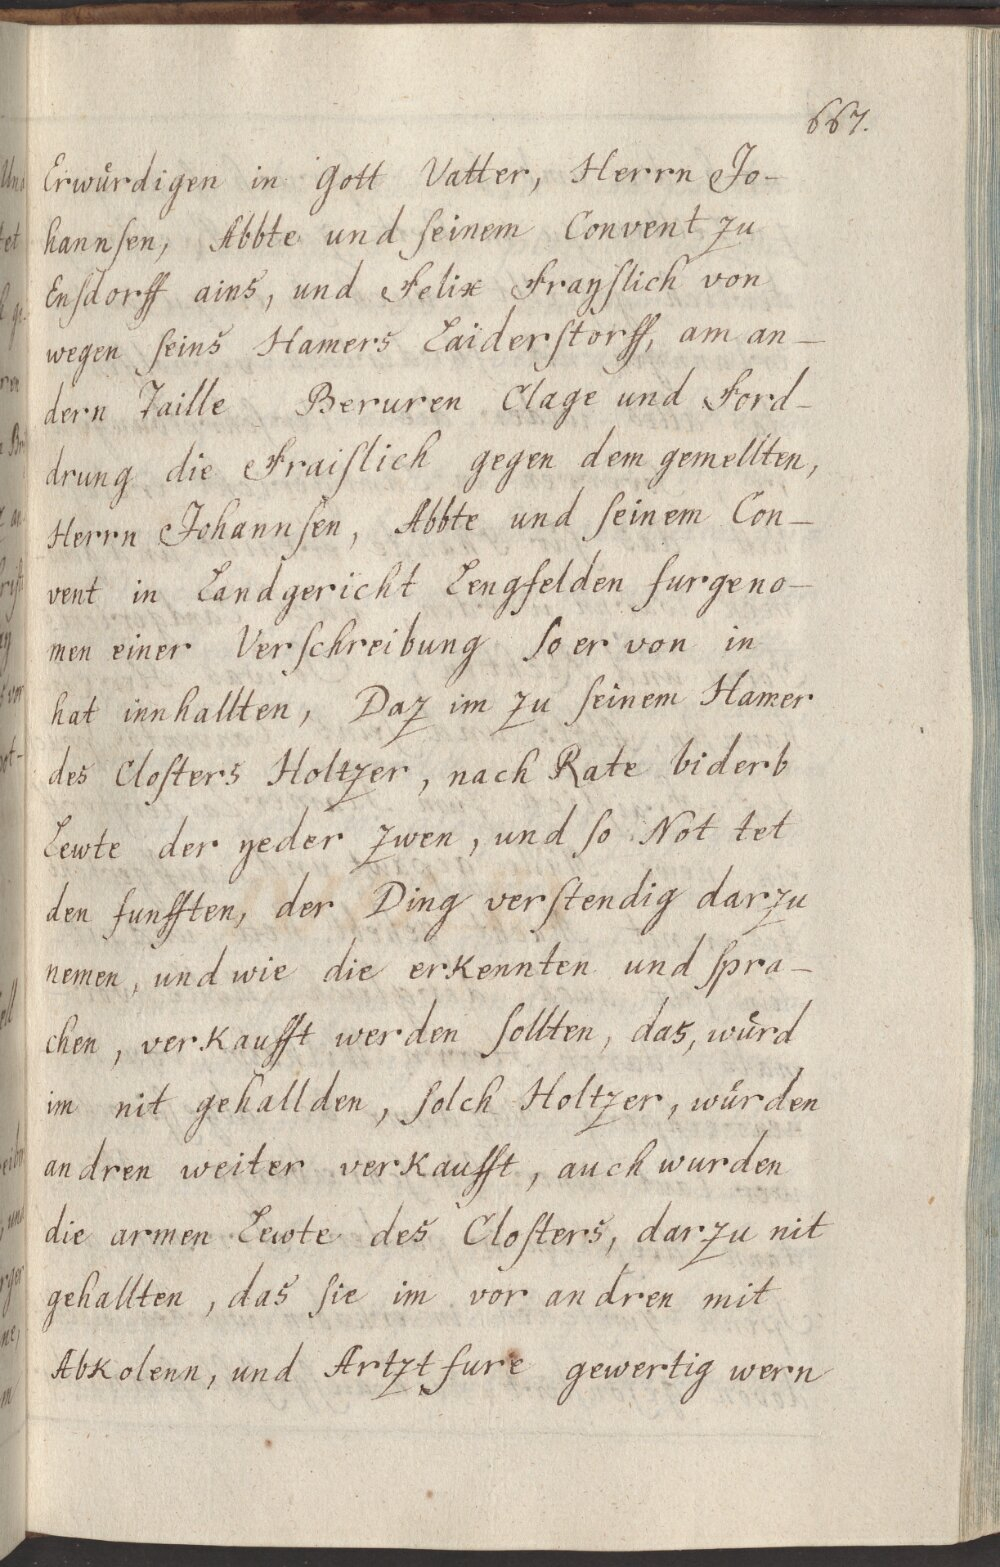 667.
Erwůrdigen in Gott Vatter, Herrn Jo-
hannsen, Abbte und seinem Convent zu
Ensdorff ains, und Felix Frayslich von
wegen seins Hamers Laiderstorff, am an-
dern Taille Beruren Clage und Ford-
drung die Fraislich gegen dem gemellten,
Herrn Johannsen, Abbte und seinem Con-
vent in Landgericht Lengfelden furgeno-
men einer Verschreibung so er von in
hat innhallten, Daz im zu seinem Hamer
des Closters Holtzer, nach Rate biderb
Lewte der yeder zwen, und so Not tet
den funfften, der Ding verstendig darzu
nemen, und wie die erkennten und spra-
chen, verkaufft werden sollten, das, wůrd
im nit gehallden, solch Holtzer, wůrden
andren weiter verkaufft, auch wurden
die armen Lewte des Closters, darzu nit
gehallten, das sie im vor andren mit
Abkolenn, und Artzt fure gewertig wern